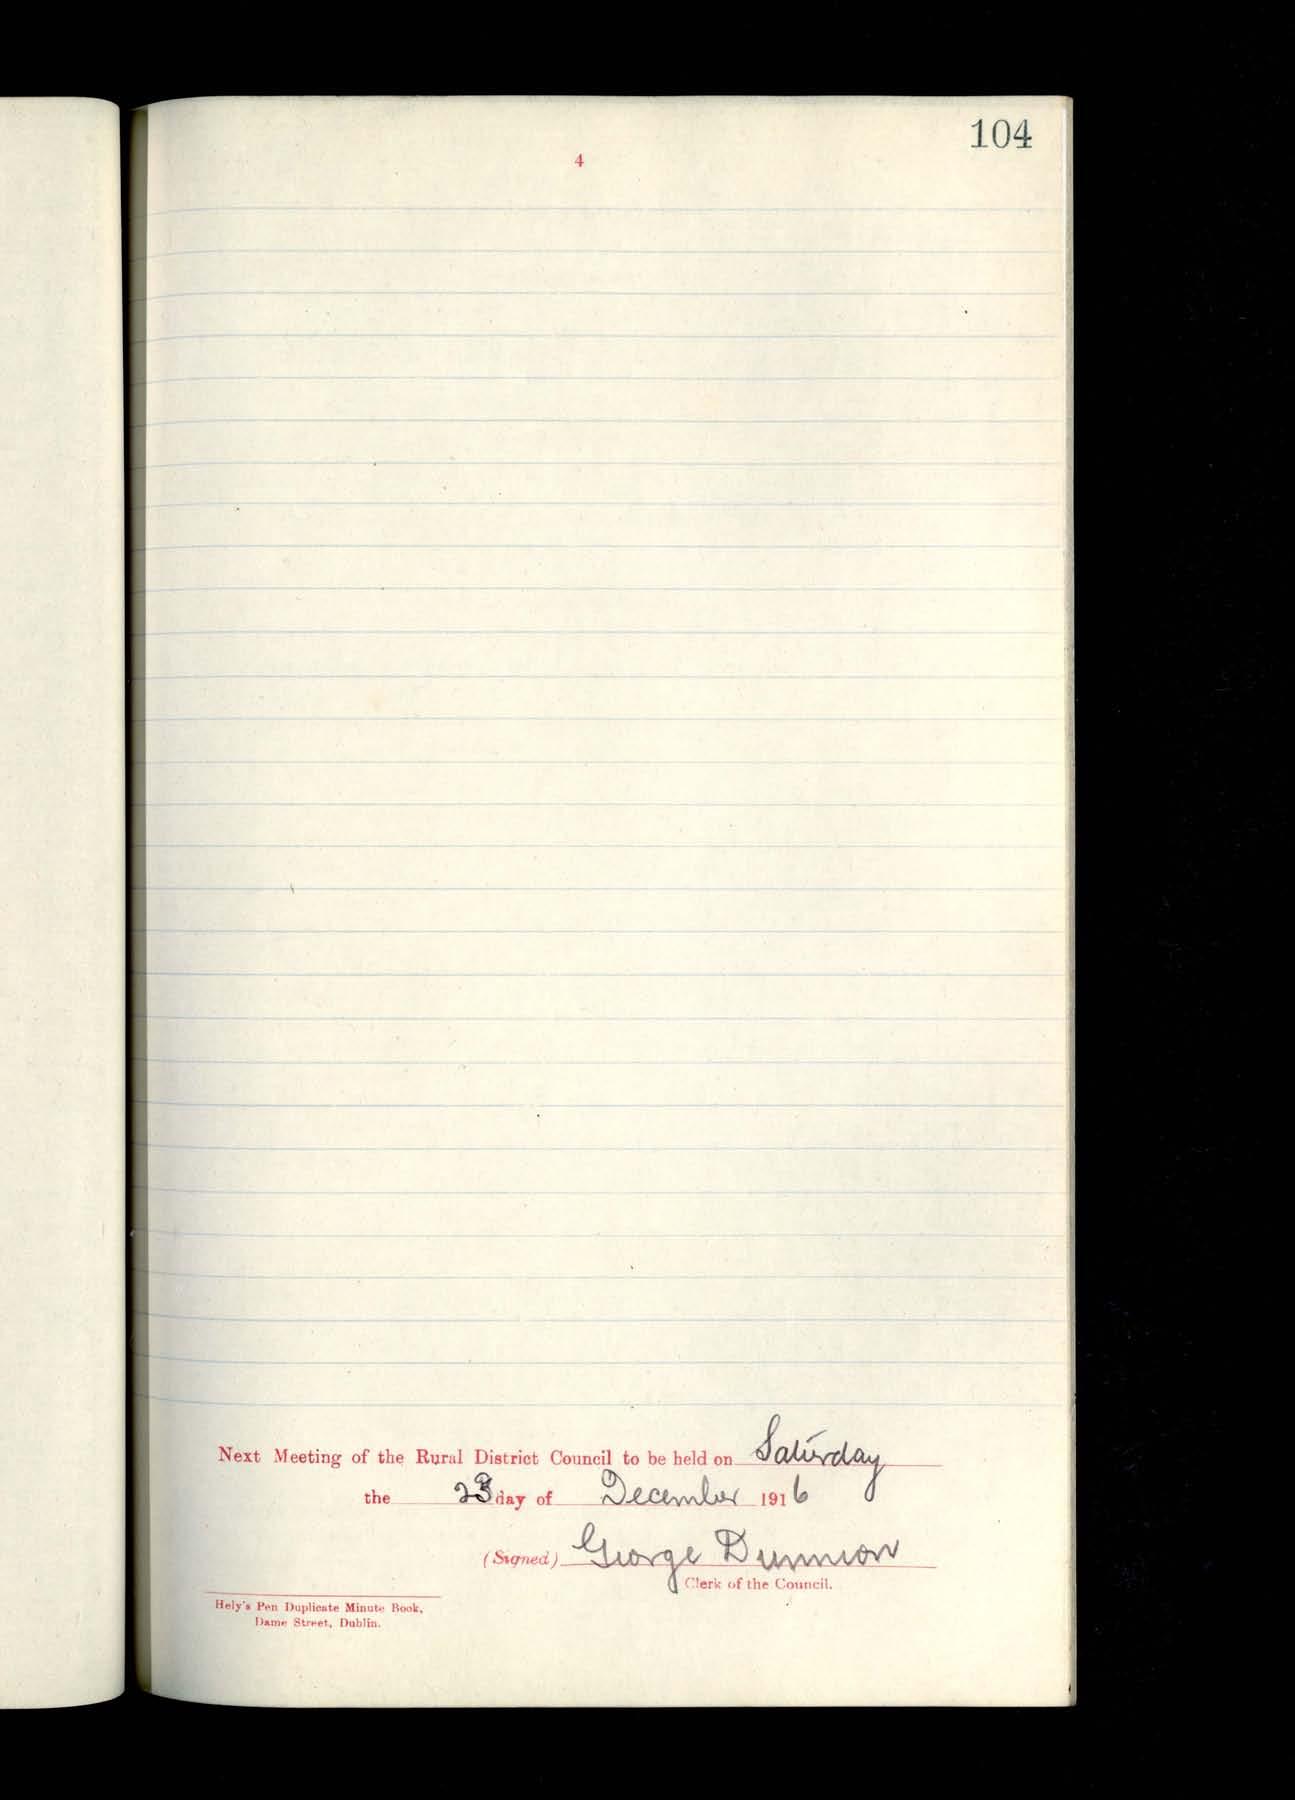 104
4
Next Meeting of the Rural District Council to be held on Saturday
the 23 day of December 1916
(Signed) George Dunnion
Clerk of the Council.
Hely's Pen Duplicate Minute Book,
Dame Street, Dublin.